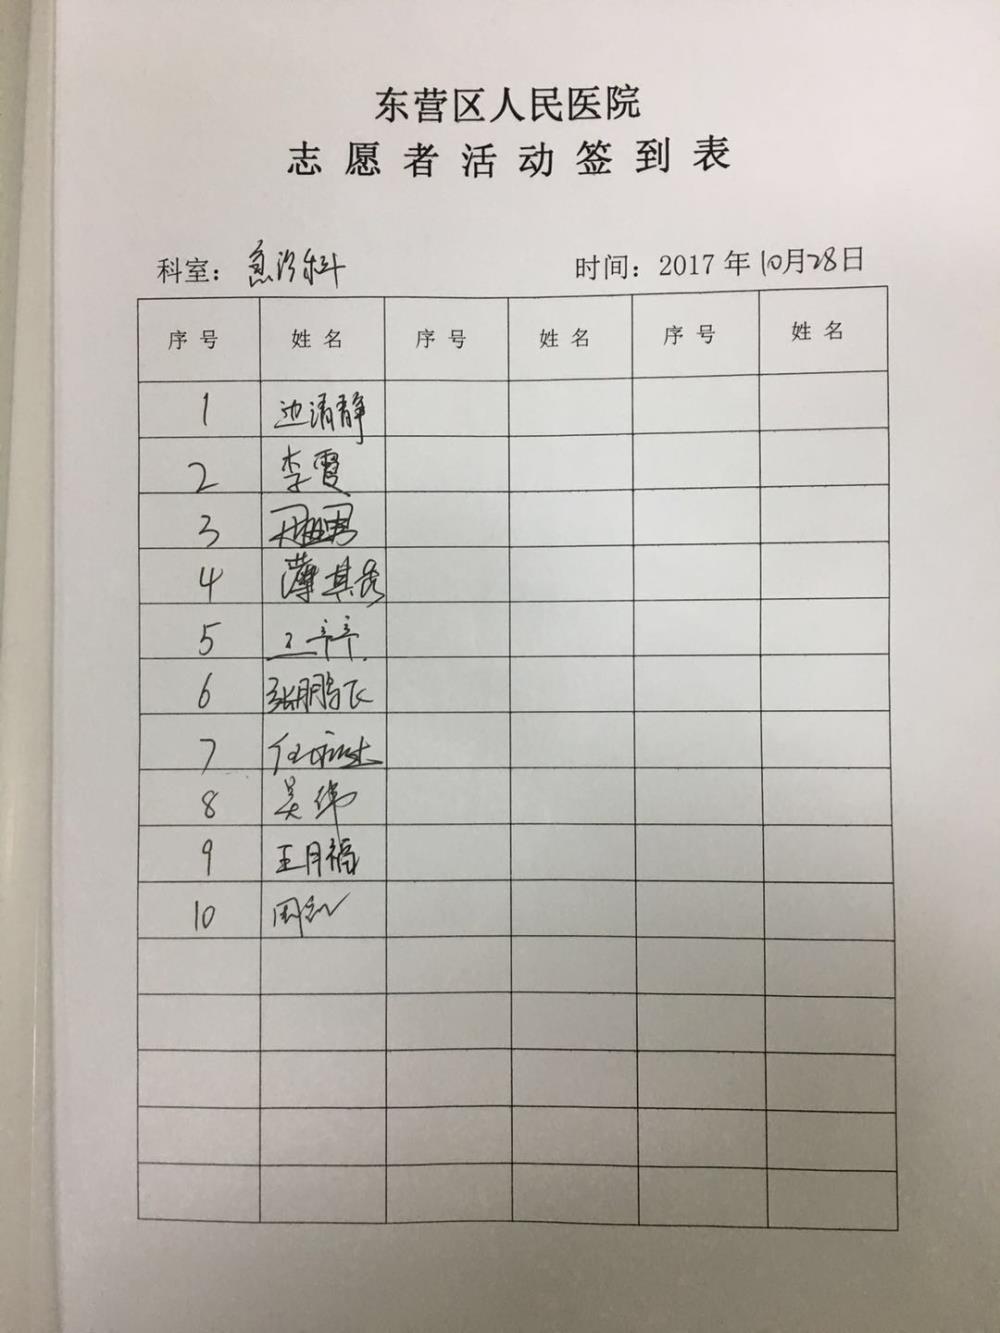 东营区人民医院
志愿者活动签到表
科室：急诊科 时间：2017年10月28日
序号 姓名 序号 姓名 序号 姓名
1 边清静
2 李霞
3
4 薄其秀
5 王辛辛
6 张鹏飞
7 任
8 吴伟
9 王月福
10 周